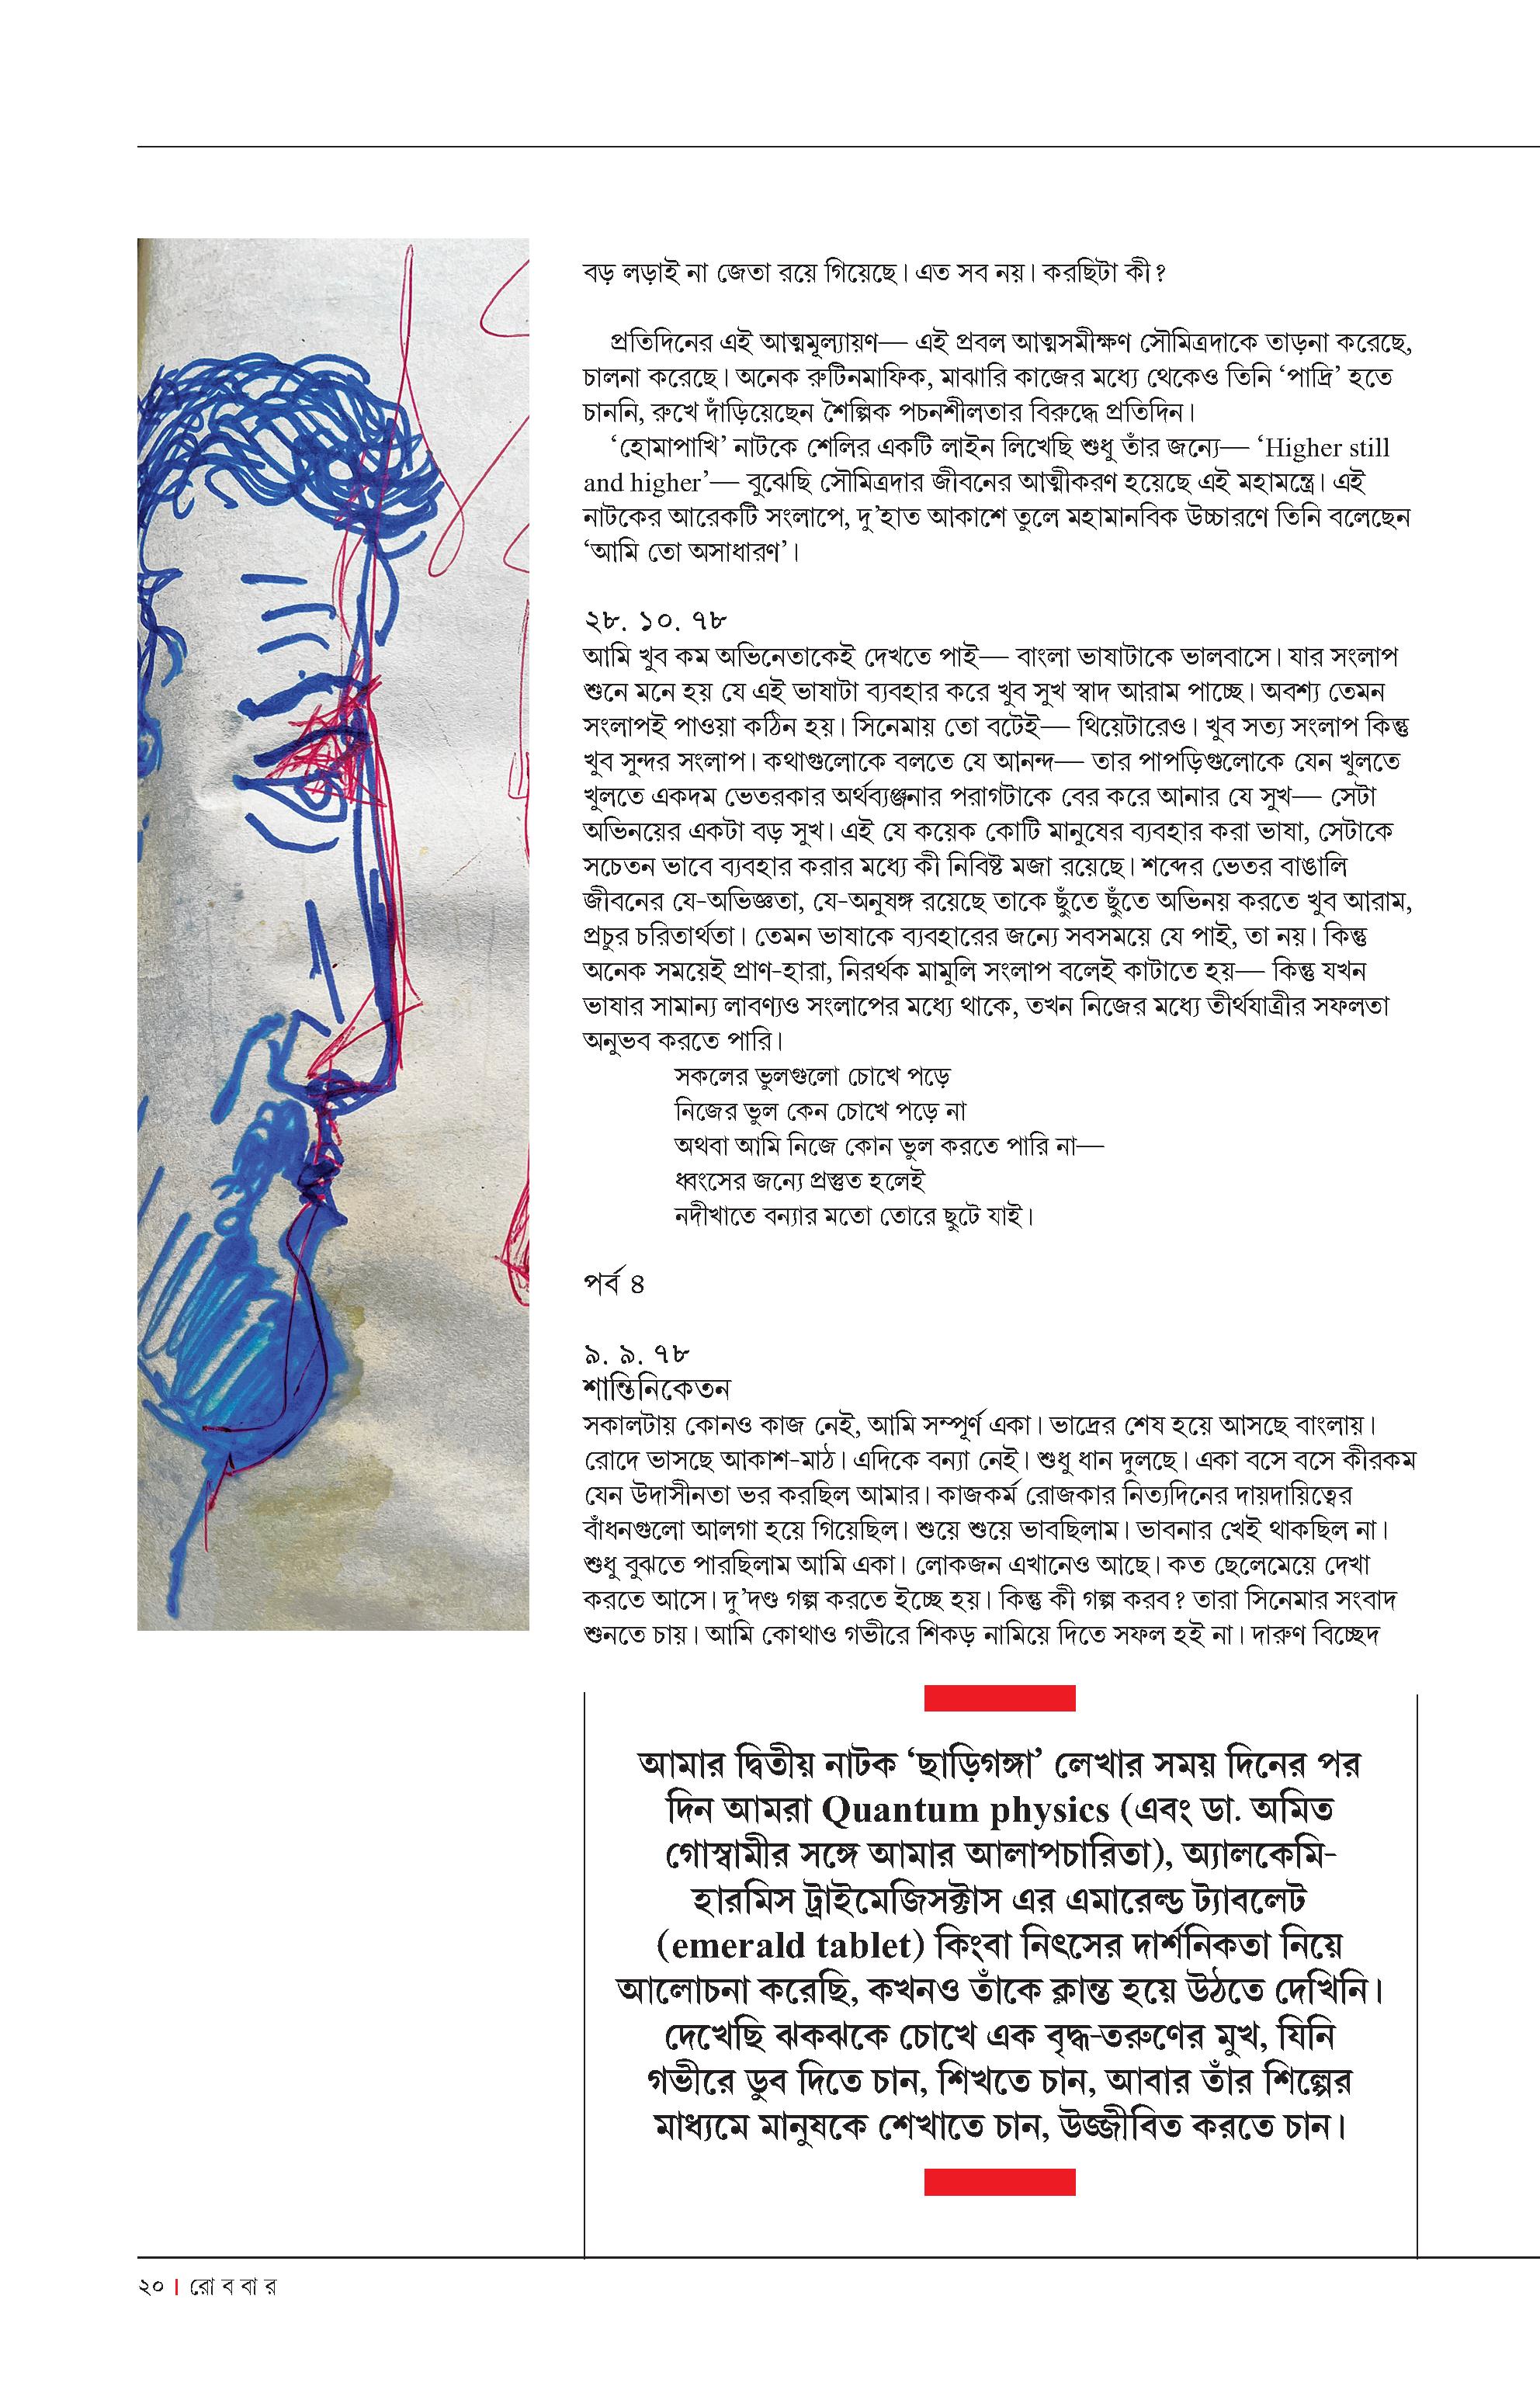 বড় লড়াই না জেতা রয়ে গিয়েছে। এত সব নয়। করছিটা কী?
প্রতিদিনের এই আত্মমূল্যায়ণ— এই প্রবল আত্মসমীক্ষণ সৌমিত্রদাকে তাড়না করেছে,
চালনা করেছে। অনেক রুটিনমাফিক, মাঝারি কাজের মধ্যে থেকেও তিনি ‘পাদ্রি’ হতে
চাননি, রুখে দাঁড়িয়েছেন শৈল্পিক পচনশীলতার বিরুদ্ধে প্রতিদিন।
‘হোমাপাখি’ নাটকে শেলির একটি লাইন লিখেছি শুধু তাঁর জন্যে— ‘Higher still
and higher’— বুঝেছি সৌমিত্রদার জীবনের আত্মীকরণ হয়েছে এই মহামন্ত্রে। এই
নাটকের আরেকটি সংলাপে, দু’হাত আকাশে তুলে মহামানবিক উচ্চারণে তিনি বলেছেন
‘আমি তো অসাধারণ’।
২৮. ১০. ৭৮
আমি খুব কম অভিনেতাকেই দেখতে পাই— বাংলা ভাষাটাকে ভালবাসে। যার সংলাপ
শুনে মনে হয় যে এই ভাষাটা ব্যবহার করে খুব সুখ স্বাদ আরাম পাচ্ছে। অবশ্য তেমন
সংলাপই পাওয়া কঠিন হয়। সিনেমায় তো বটেই— থিয়েটারেও। খুব সত্য সংলাপ কিন্তু
খুব সুন্দর সংলাপ। কথাগুলোকে বলতে যে আনন্দ— তার পাপড়িগুলোকে যেন খুলতে
খুলতে একদম ভেতরকার অর্থব্যঞ্জনার পরাগটাকে বের করে আনার যে সুখ— সেটা
অভিনয়ের একটা বড় সুখ। এই যে কয়েক কোটি মানুষের ব্যবহার করা ভাষা, সেটাকে
সচেতন ভাবে ব্যবহার করার মধ্যে কী নিবিষ্ট মজা রয়েছে। শব্দের ভেতর বাঙালি
জীবনের যে-অভিজ্ঞতা, যে-অনুষঙ্গ রয়েছে তাকে ছুঁতে ছুঁতে অভিনয় করতে খুব আরাম,
প্রচুর চরিতার্থতা। তেমন ভাষাকে ব্যবহারের জন্যে সবসময়ে যে পাই, তা নয়। কিন্তু
অনেক সময়েই প্রাণ-হারা, নিরর্থক মামুলি সংলাপ বলেই কাটাতে হয়— কিন্তু যখন
ভাষার সামান্য লাবণ্যও সংলাপের মধ্যে থাকে, তখন নিজের মধ্যে তীর্থযাত্রীর সফলতা
অনুভব করতে পারি।
সকলের ভুলগুলো চোখে পড়ে
নিজের ভুল কেন চোখে পড়ে না
অথবা আমি নিজে কোন ভুল করতে পারি না—
ধ্বংসের জন্যে প্রস্তুত হলেই
নদীখাতে বন্যার মতো তোরে ছুটে যাই।
পর্ব ৪
৯. ৯. ৭৮
শান্তিনিকেতন
সকালটায় কোনও কাজ নেই, আমি সম্পূর্ণ একা। ভাদ্রের শেষ হয়ে আসছে বাংলায়।
রোদে ভাসছে আকাশ-মাঠ। এদিকে বন্যা নেই। শুধু ধান দুলছে। একা বসে বসে কীরকম
যেন উদাসীনতা ভর করছিল আমার। কাজকর্ম রোজকার নিত্যদিনের দায়দায়িত্বের
বাঁধনগুলো আলগা হয়ে গিয়েছিল। শুয়ে শুয়ে ভাবছিলাম। ভাবনার খেই থাকছিল না।
শুধু বুঝতে পারছিলাম আমি একা। লোকজন এখানেও আছে। কত ছেলেমেয়ে দেখা
করতে আসে। দু’দণ্ড গল্প করতে ইচ্ছে হয়। কিন্তু কী গল্প করব? তারা সিনেমার সংবাদ
শুনতে চায়। আমি কোথাও গভীরে শিকড় নামিয়ে দিতে সফল হই না। দারুণ বিচ্ছেদ
আমার দ্বিতীয় নাটক ‘ছাড়িগঙ্গা’ লেখার সময় দিনের পর
দিন আমরা Quantum physics (এবং ডা. অমিত
গোস্বামীর সঙ্গে আমার আলাপচারিতা), অ্যালকেমি-
হারমিস ট্রাইমেজিসক্টাস এর এমারেল্ড ট্যাবলেট
(emerald tablet) কিংবা নিৎসের দার্শনিকতা নিয়ে
আলোচনা করেছি, কখনও তাঁকে ক্লান্ত হয়ে উঠতে দেখিনি।
দেখেছি ঝকঝকে চোখে এক বৃদ্ধ-তরুণের মুখ, যিনি
গভীরে ডুব দিতে চান, শিখতে চান, আবার তাঁর শিল্পের
মাধ্যমে মানুষকে শেখাতে চান, উজ্জীবিত করতে চান।
২০ | রো ব বা র